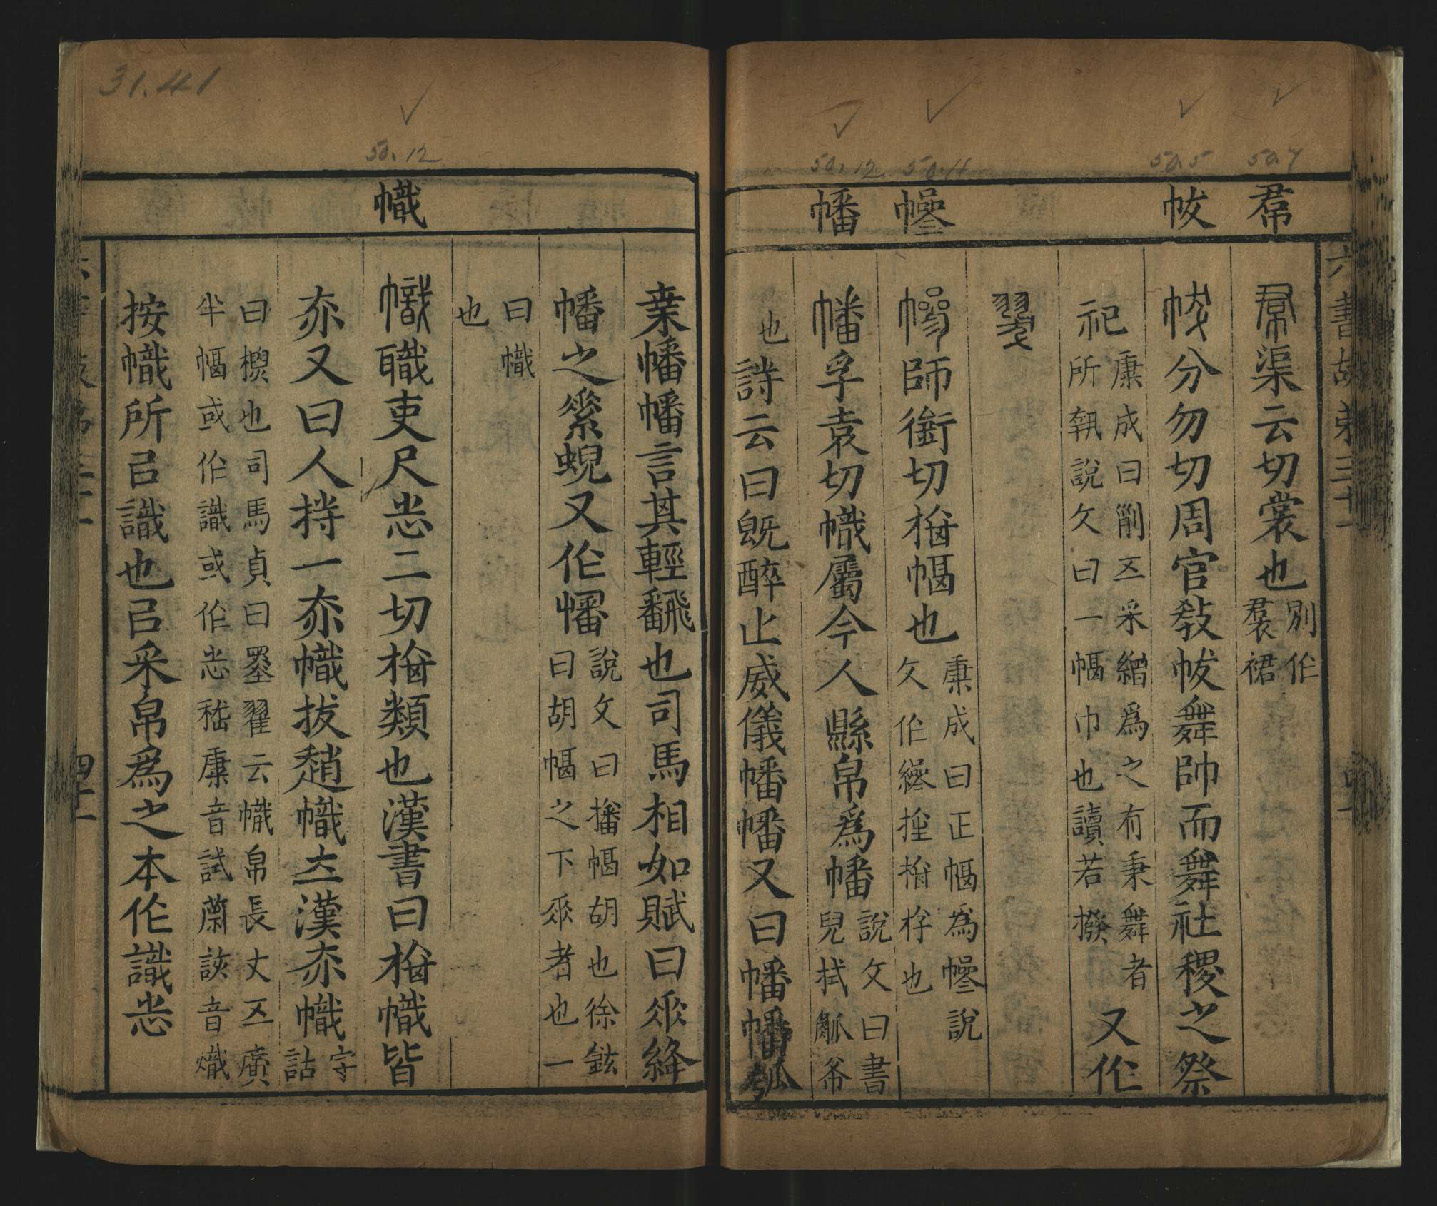 31.41
50.12
50.12
50.11
50.5
50.7
帬
帗
幓
幡
幟
帬渠云切裳也別作
裠裙
帗分勿切周官敎帗舞帥而舞社稷之祭
祀康成曰𠛱五采繒爲之有秉舞者
所執說文曰一幅巾也讀若撥又作
翇
幓師銜切㮰幅也康成曰正幅爲幓說
文作縿㮰也
幡孚袁切幟屬今人縣帛爲幡說文曰書
兒拭觚布
也詩云曰旣醉止威儀幡幡又曰幡幡瓠
葉幡幡言其輕飜也司馬相如賦曰𠂢絳
幡之素蜺又作㡞說文曰㡞幅胡也徐鉉
曰胡幅之下𠂢者也一
曰幟
也
幟職吏尺志二切㮰類也漢書曰㮰幟皆
赤又曰人持一赤幟拔趙幟立漢赤幟字
詁
曰㯹也司馬貞曰墨翟云幟帛長丈五廣
半幅或作識或作志嵇康音試蕭該音熾
按幟所㠯識也㠯采帛爲之本作識志